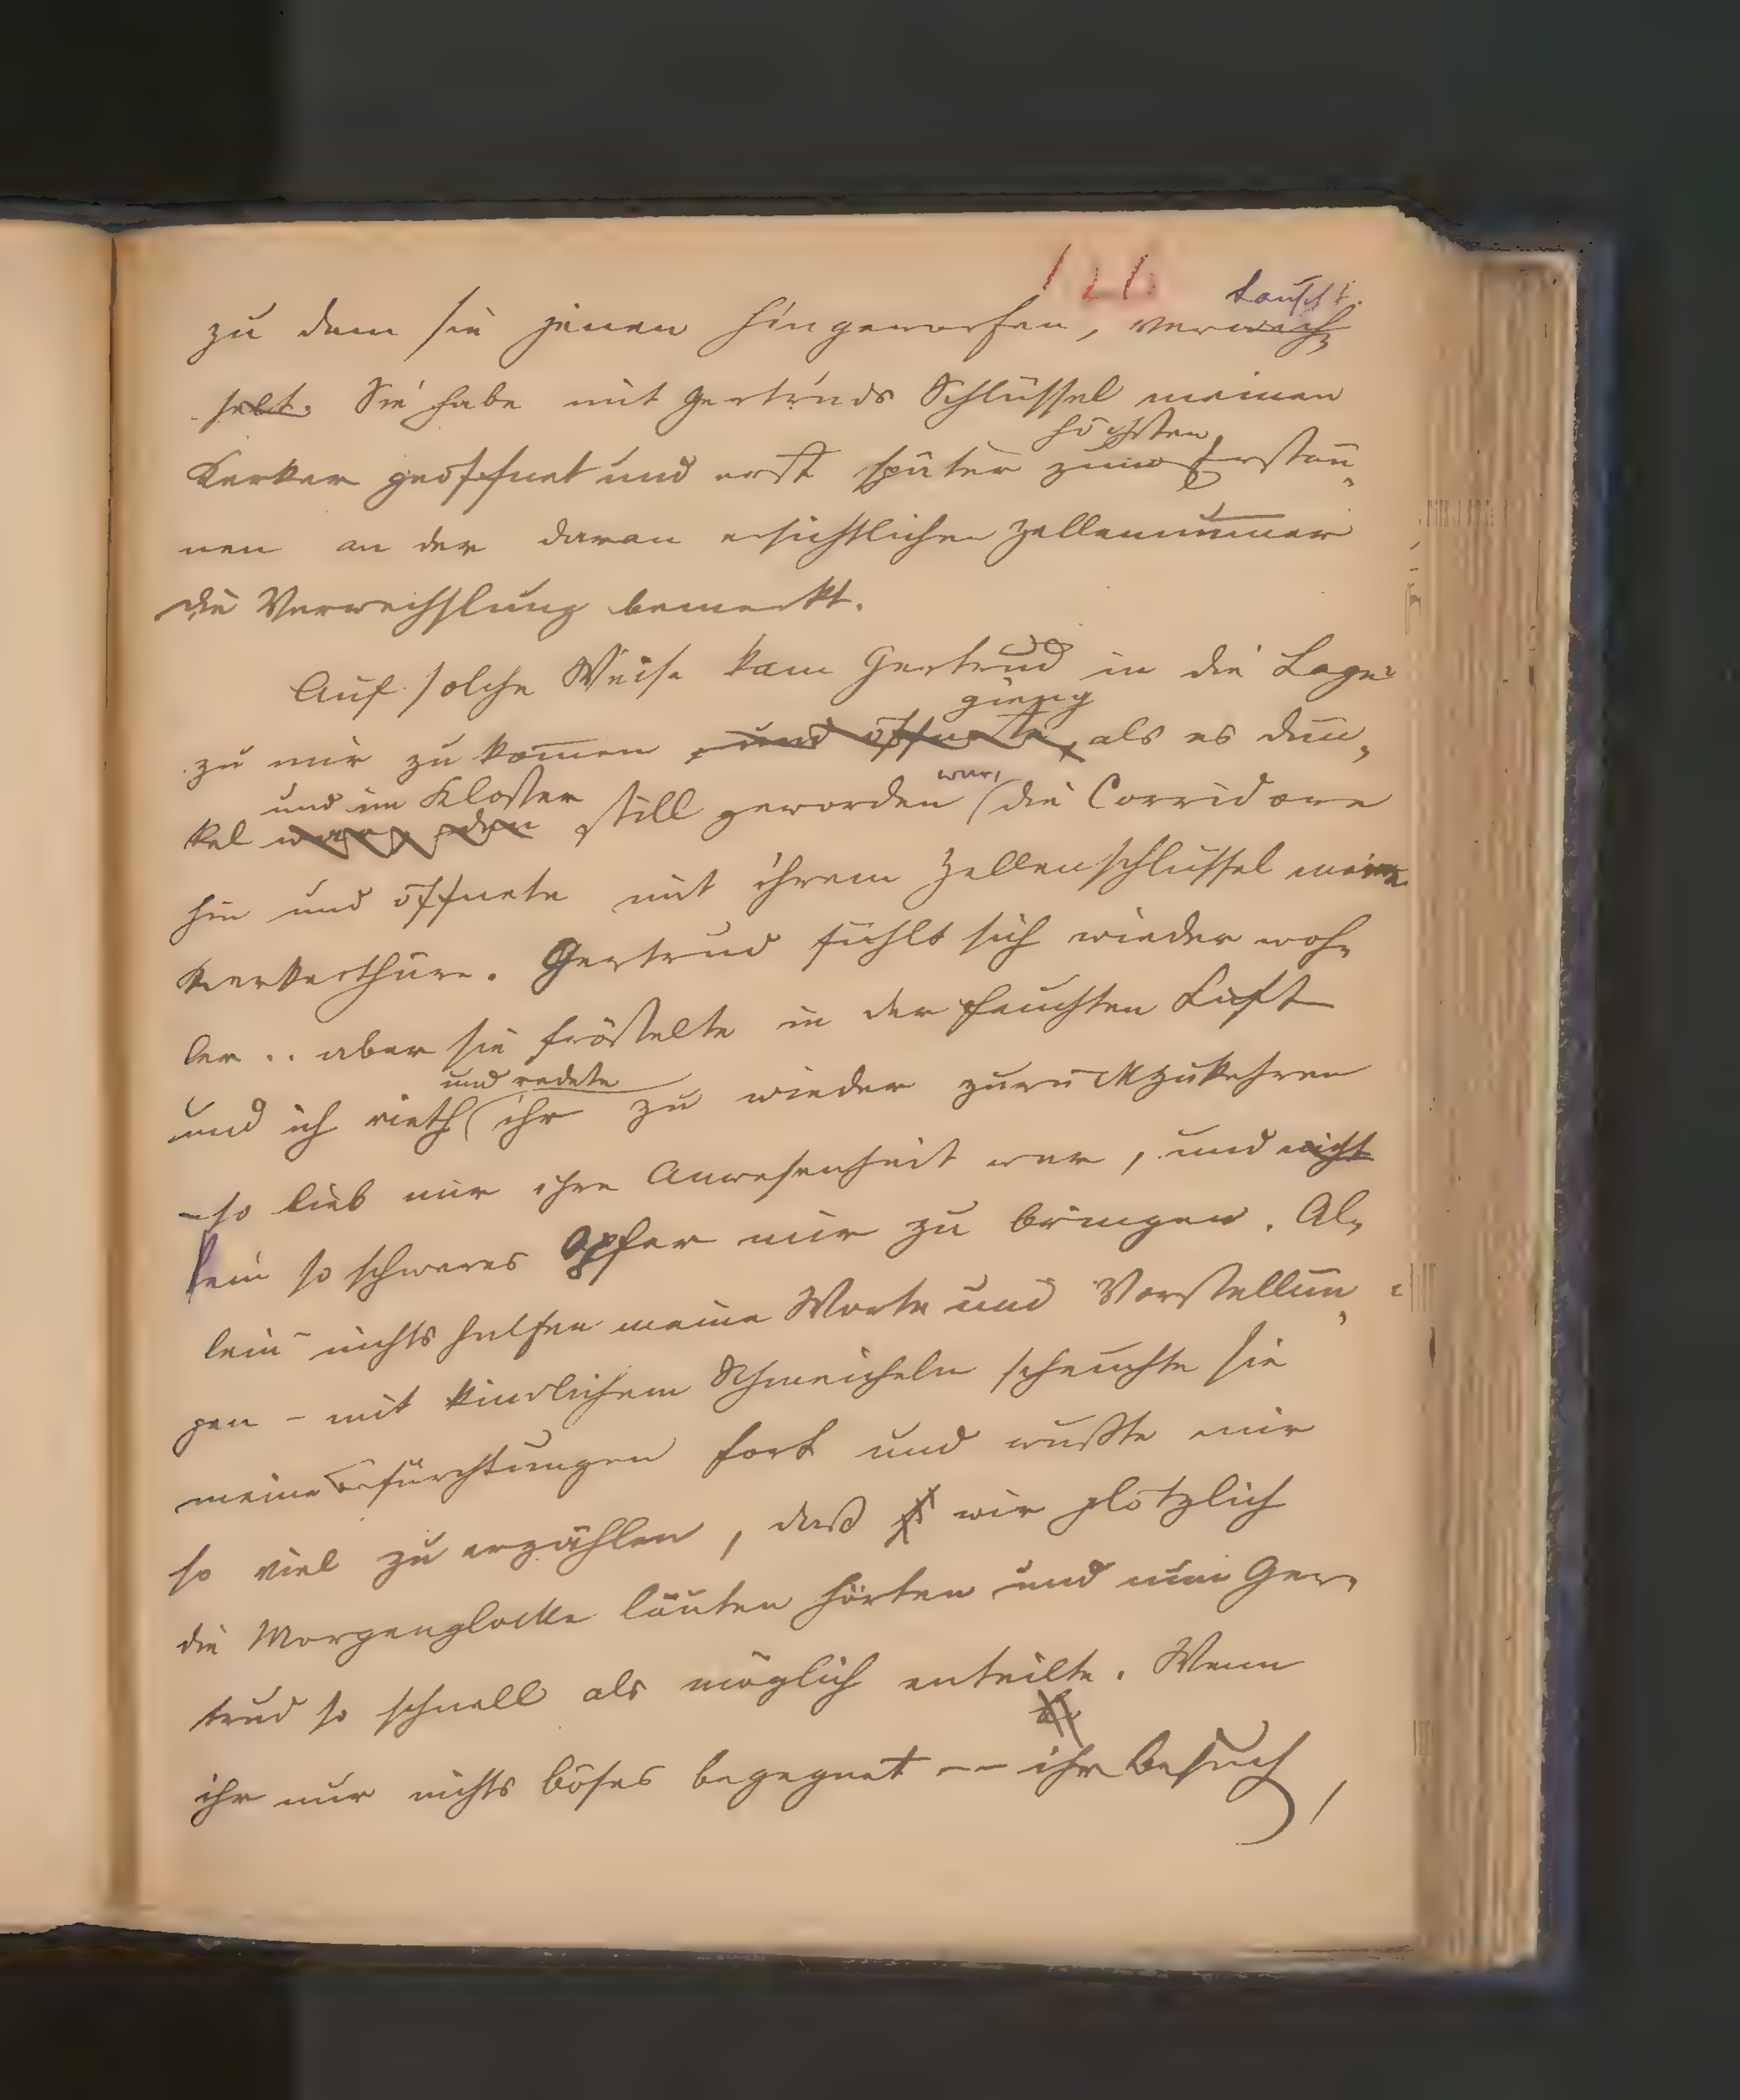 121
tauscht.
zu dem sie jenen hingeworfen, verwech-
selt. Sie habe mit Gertruds Schlüssel meinen
höchsten
Kerker geöffnet und erst später zum Erstau-
nen an der daran ersichtlichen Zellennummer
die Verwechslung bemerkt.
Auf solche Weise kam Gertrud in die Lage
gieng
zu mir zu kom̄en und öffnete, als es dun-
und im Kloster war,
kel still geworden die Corridore
hin und öffnete mit ihrem Zellenschlüssel meine
Kerkerthüre. Gertrud fühlt sich wieder woh-
ler .. aber sie fröstelte in der feuchten Luft
und redete
und ich rieth ihr zu wieder zurückzukehren
– so lieb mir ihre Anwesenheit war, und nicht
kein so schweres Opfer mir zu bringen. Al-
lein – nichts halfen meine Worte und Vorstellun-
gen – mit kindlichem Schmeicheln scheuchte sie
meine Befürchtungen fort und wußte mir
so viel zu erzählen, daß wir plötzlich
die Morgenglocke läuten hörten und nun Ger-
trud so schnell als möglich enteilte. Wenn
ihr nur nichts böses begegnet –– ihr Besuch,